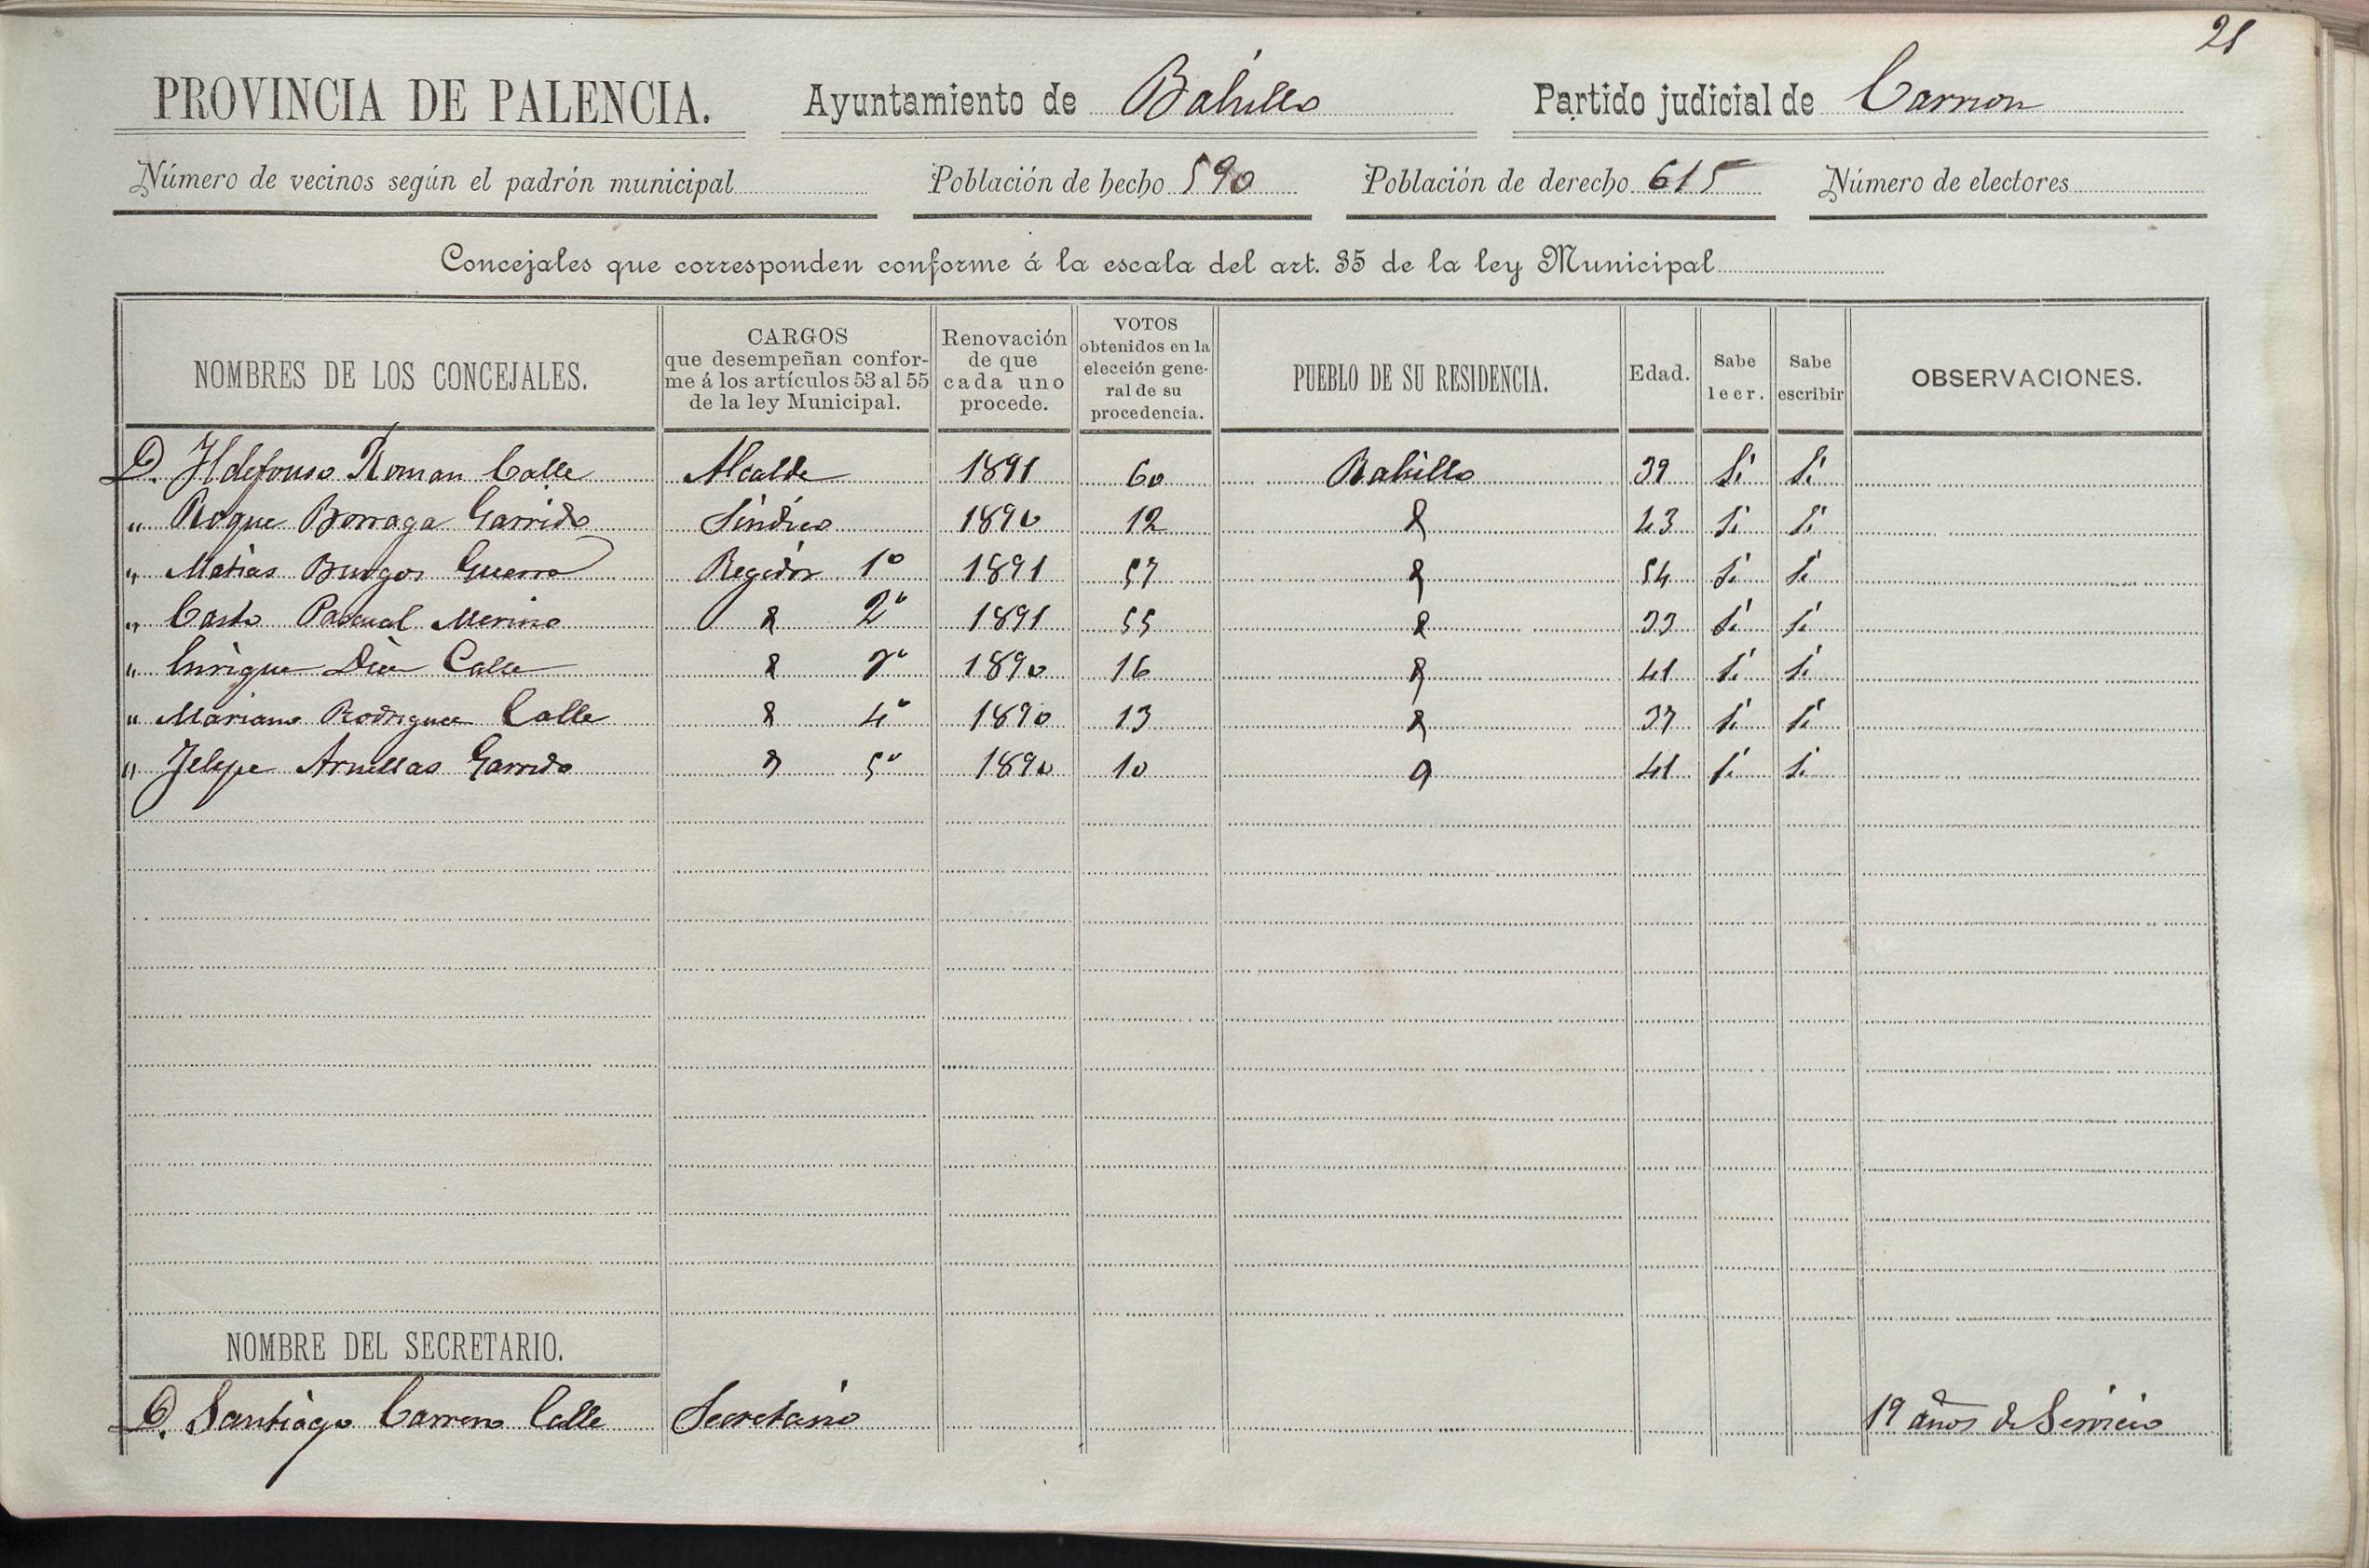 21
PROVINCIA DE PALENCIA. Ayuntamiento de Bahillo Partido judicial de Carrion
Número de vecinos según el padrón municipal Población de hecho 590 Población de derecho 615 Número de electores
Concejales que corresponden conforme á la escala del art. 35 de la ley Municipal
NOMBRES DE LOS CONCEJALES. CARGOS que desempeñan conforme á los artículos 53 al 55 de la ley Municipal. Renovación de que cada uno procede. VOTOS obtenidos en la elección general de su procedencia. PUEBLO DE SU RESIDENCIA. Edad. Sabe leer. Sabe escribir OBSERVACIONES.
D. Ildefonso Roman Calle Alcalde 1891 60 Bahillo 39 Si Si
" Roque Borraga Garrido Sindico 1890 12 43 Si Si
" Matias Burgos Guerra Regidor 1º 1891 57 54 Si Si
" Casto Pascual Merino 2º 1891 55 33 Si Si
" Enrique Diez Calle 3º 1890 16 41 Si Si
" Mariano Rodriguez Calle 4º 1890 13 37 Si Si
" Felipe Arnillas Garrido 5º 1890 10 41 Si Si
NOMBRE DEL SECRETARIO.
D. Santiago Carrera Calle Secretario 19 años de Servicio